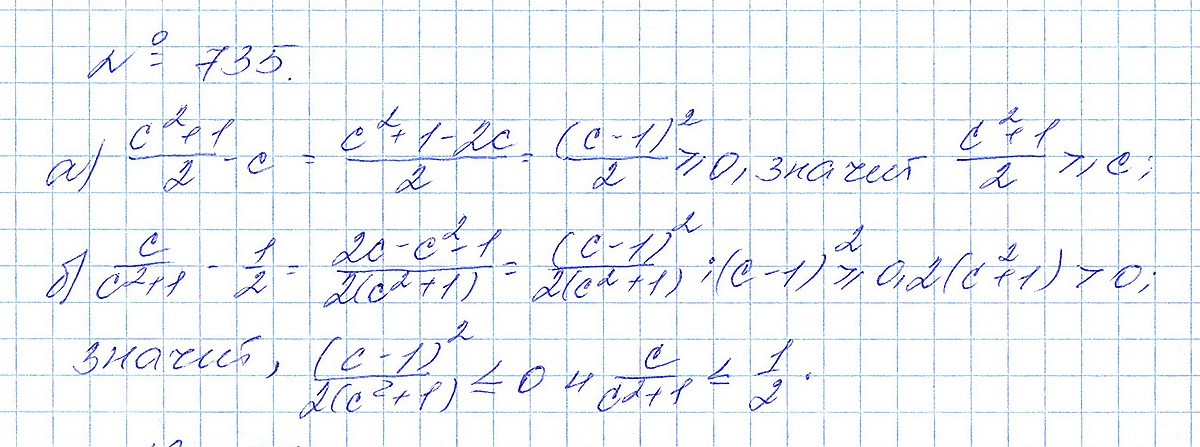 № 735.
а) (c²+1)/2 - c = (c²+1-2c)/2 = (c-1)²/2 ⩾ 0, значит (c²+1)/2 ⩾ c;
б) c/(c²+1) - 1/2 = (2c-c²-1)/(2(c²+1)) = (c-1)²/(2(c²+1)); (c-1)² ⩾ 0, 2(c²+1) > 0;
значит, (c-1)²/(2(c²+1)) ≤ 0 и c/(c²+1) ≤ 1/2.